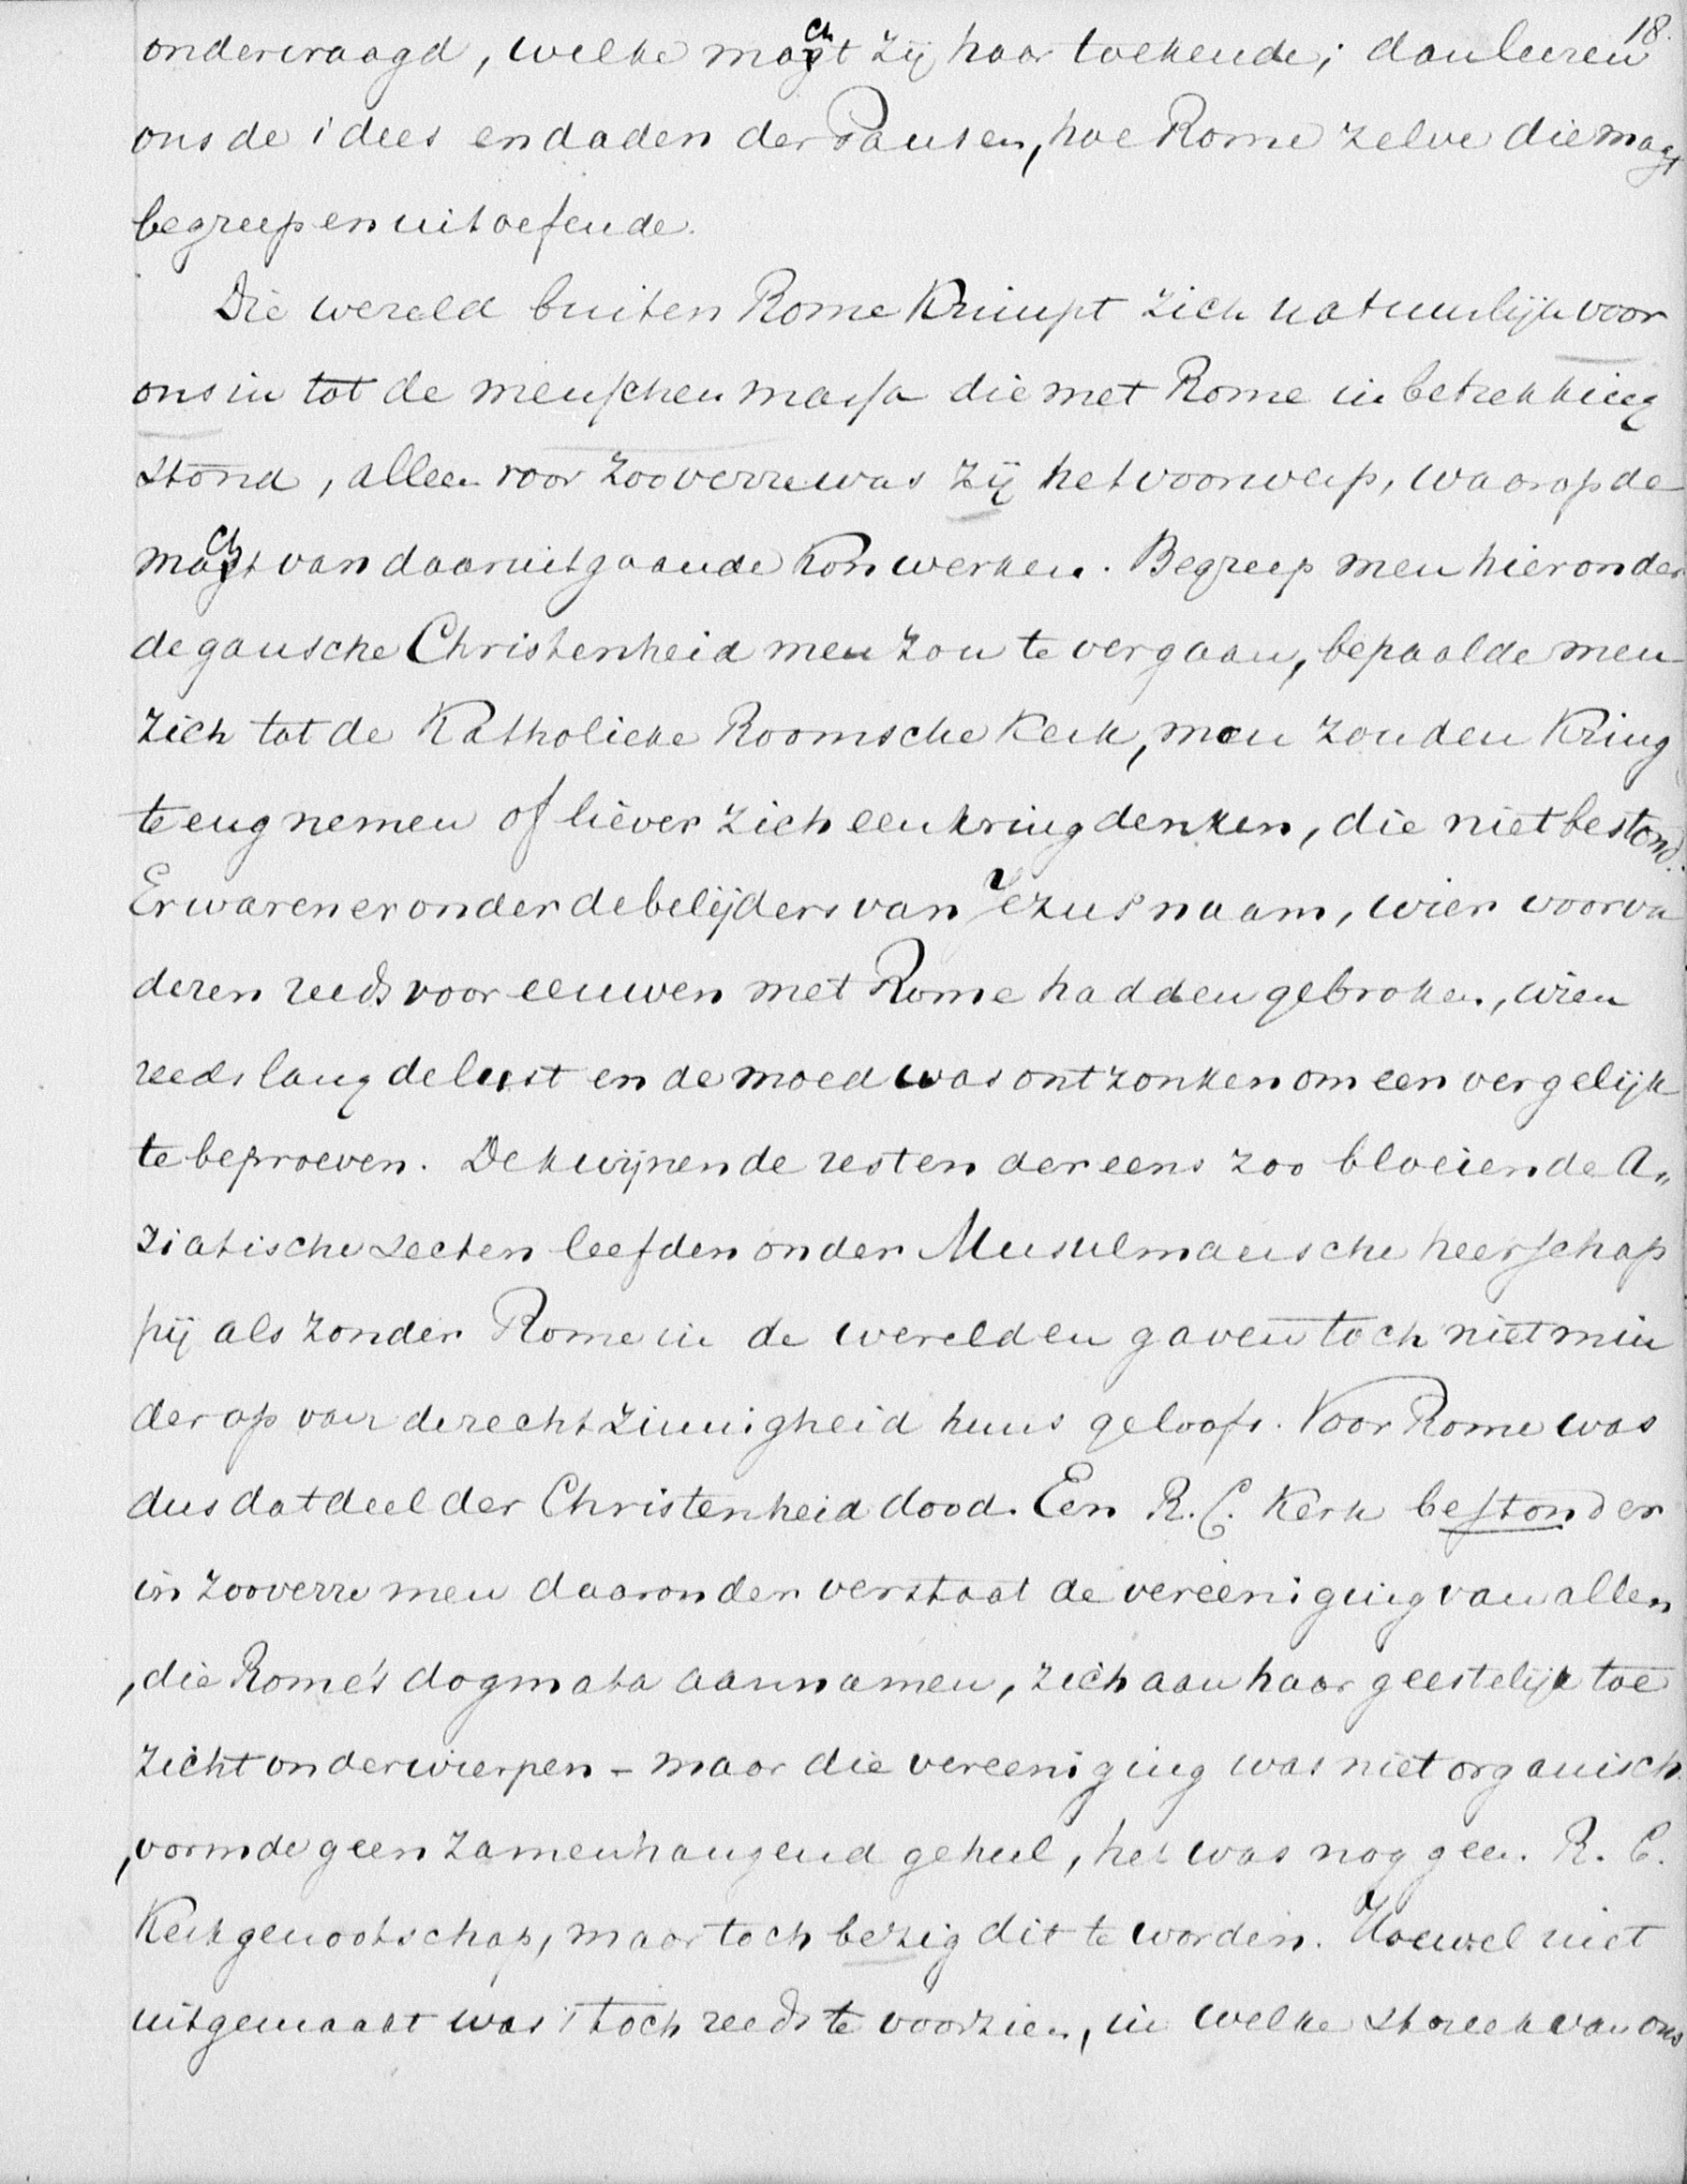 18.
ondervraagd, welke macht zij haar toekende; dan leeren
ons de idees en daden der Pausen, hoe Rome zelve die magt
begreep en uitoefende.
Die wereld buiten Rome krimpt zich natuurlijk voor
ons in tot de menschenmassa die met Rome in betrekking
stond, alleen voor zooverre was zij het voorwerp, waarop de
macht van daar uitgaande kon werken. Begreep men hieronder
de gansche Christenheid men zou te ver gaan, bepaalde men
zich tot de Katholieke Roomsche Kerk, men zou den Kring
te eng nemen of liever zich een kring denken, die niet bestond.
Er waren er onder de belijders van Jezus naam, wier voorva
deren reeds voor eeuwen met Rome hadden gebroken, wien
reeds lang de lust en de moed was ontzonken om een vergelijk
te beproeven. De kwijnende resten der eens zoo bloeiende A„
ziatische secten leefden onder Musulmansche heerschap
pij als zonder Rome in de wereld en gaven toch niet min
der op van de rechtzinnigheid huns geloofs. Voor Rome was
dus dat deel der Christenheid dood. Een R. C. Kerk bestond er
in zooverre men daaronder verstaat de vereeniging van allen
, die Rome's dogmata aannamen, zich aan haar geestelijk toe
zicht onderwierpen - maar die vereeniging was niet organisch
, vormde geen zamenhangend geheel, het was nog geen R. C.
Kerkgenootschap, maar toch bezig dit te worden. Hoewel niet
uitgemaakt was 't toch reeds te voorzien, in welke streek van ons